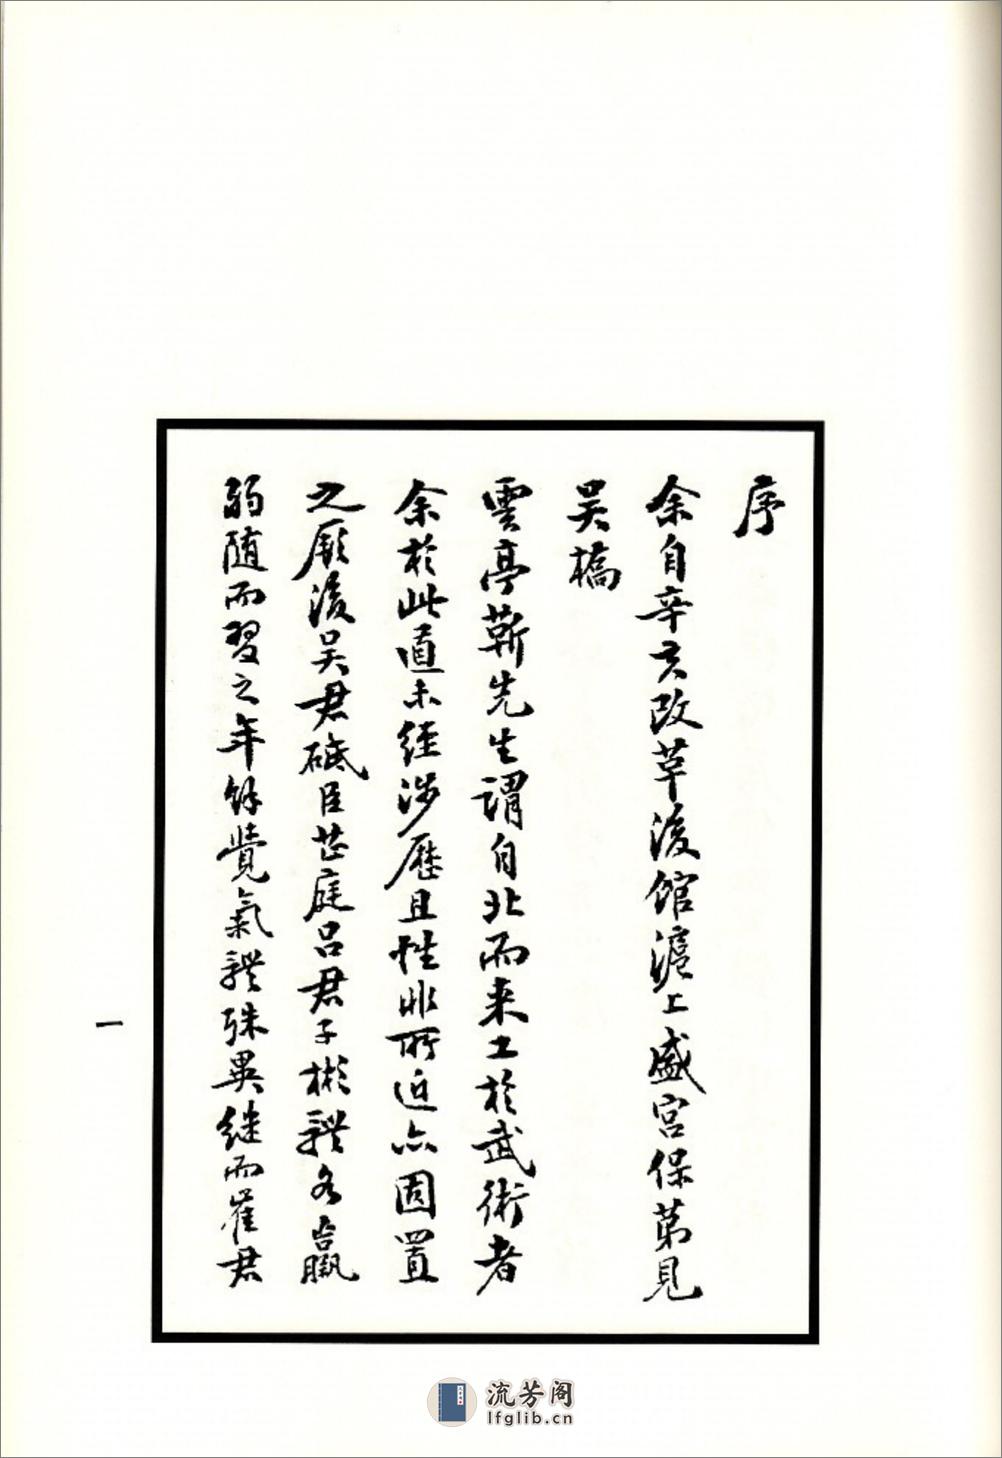 序
余自辛亥改革後館滬上盛宮保第見
吳橋
雲亭靳先生謂自北而來工於武術者
余於此道未經涉歷且性非所近亦固置
之厥後吳君砥臣芷庭呂君子彬體各羸
弱随而習之年餘覺氣體殊異继而崔君
一
流芳阁
lfglib.cn